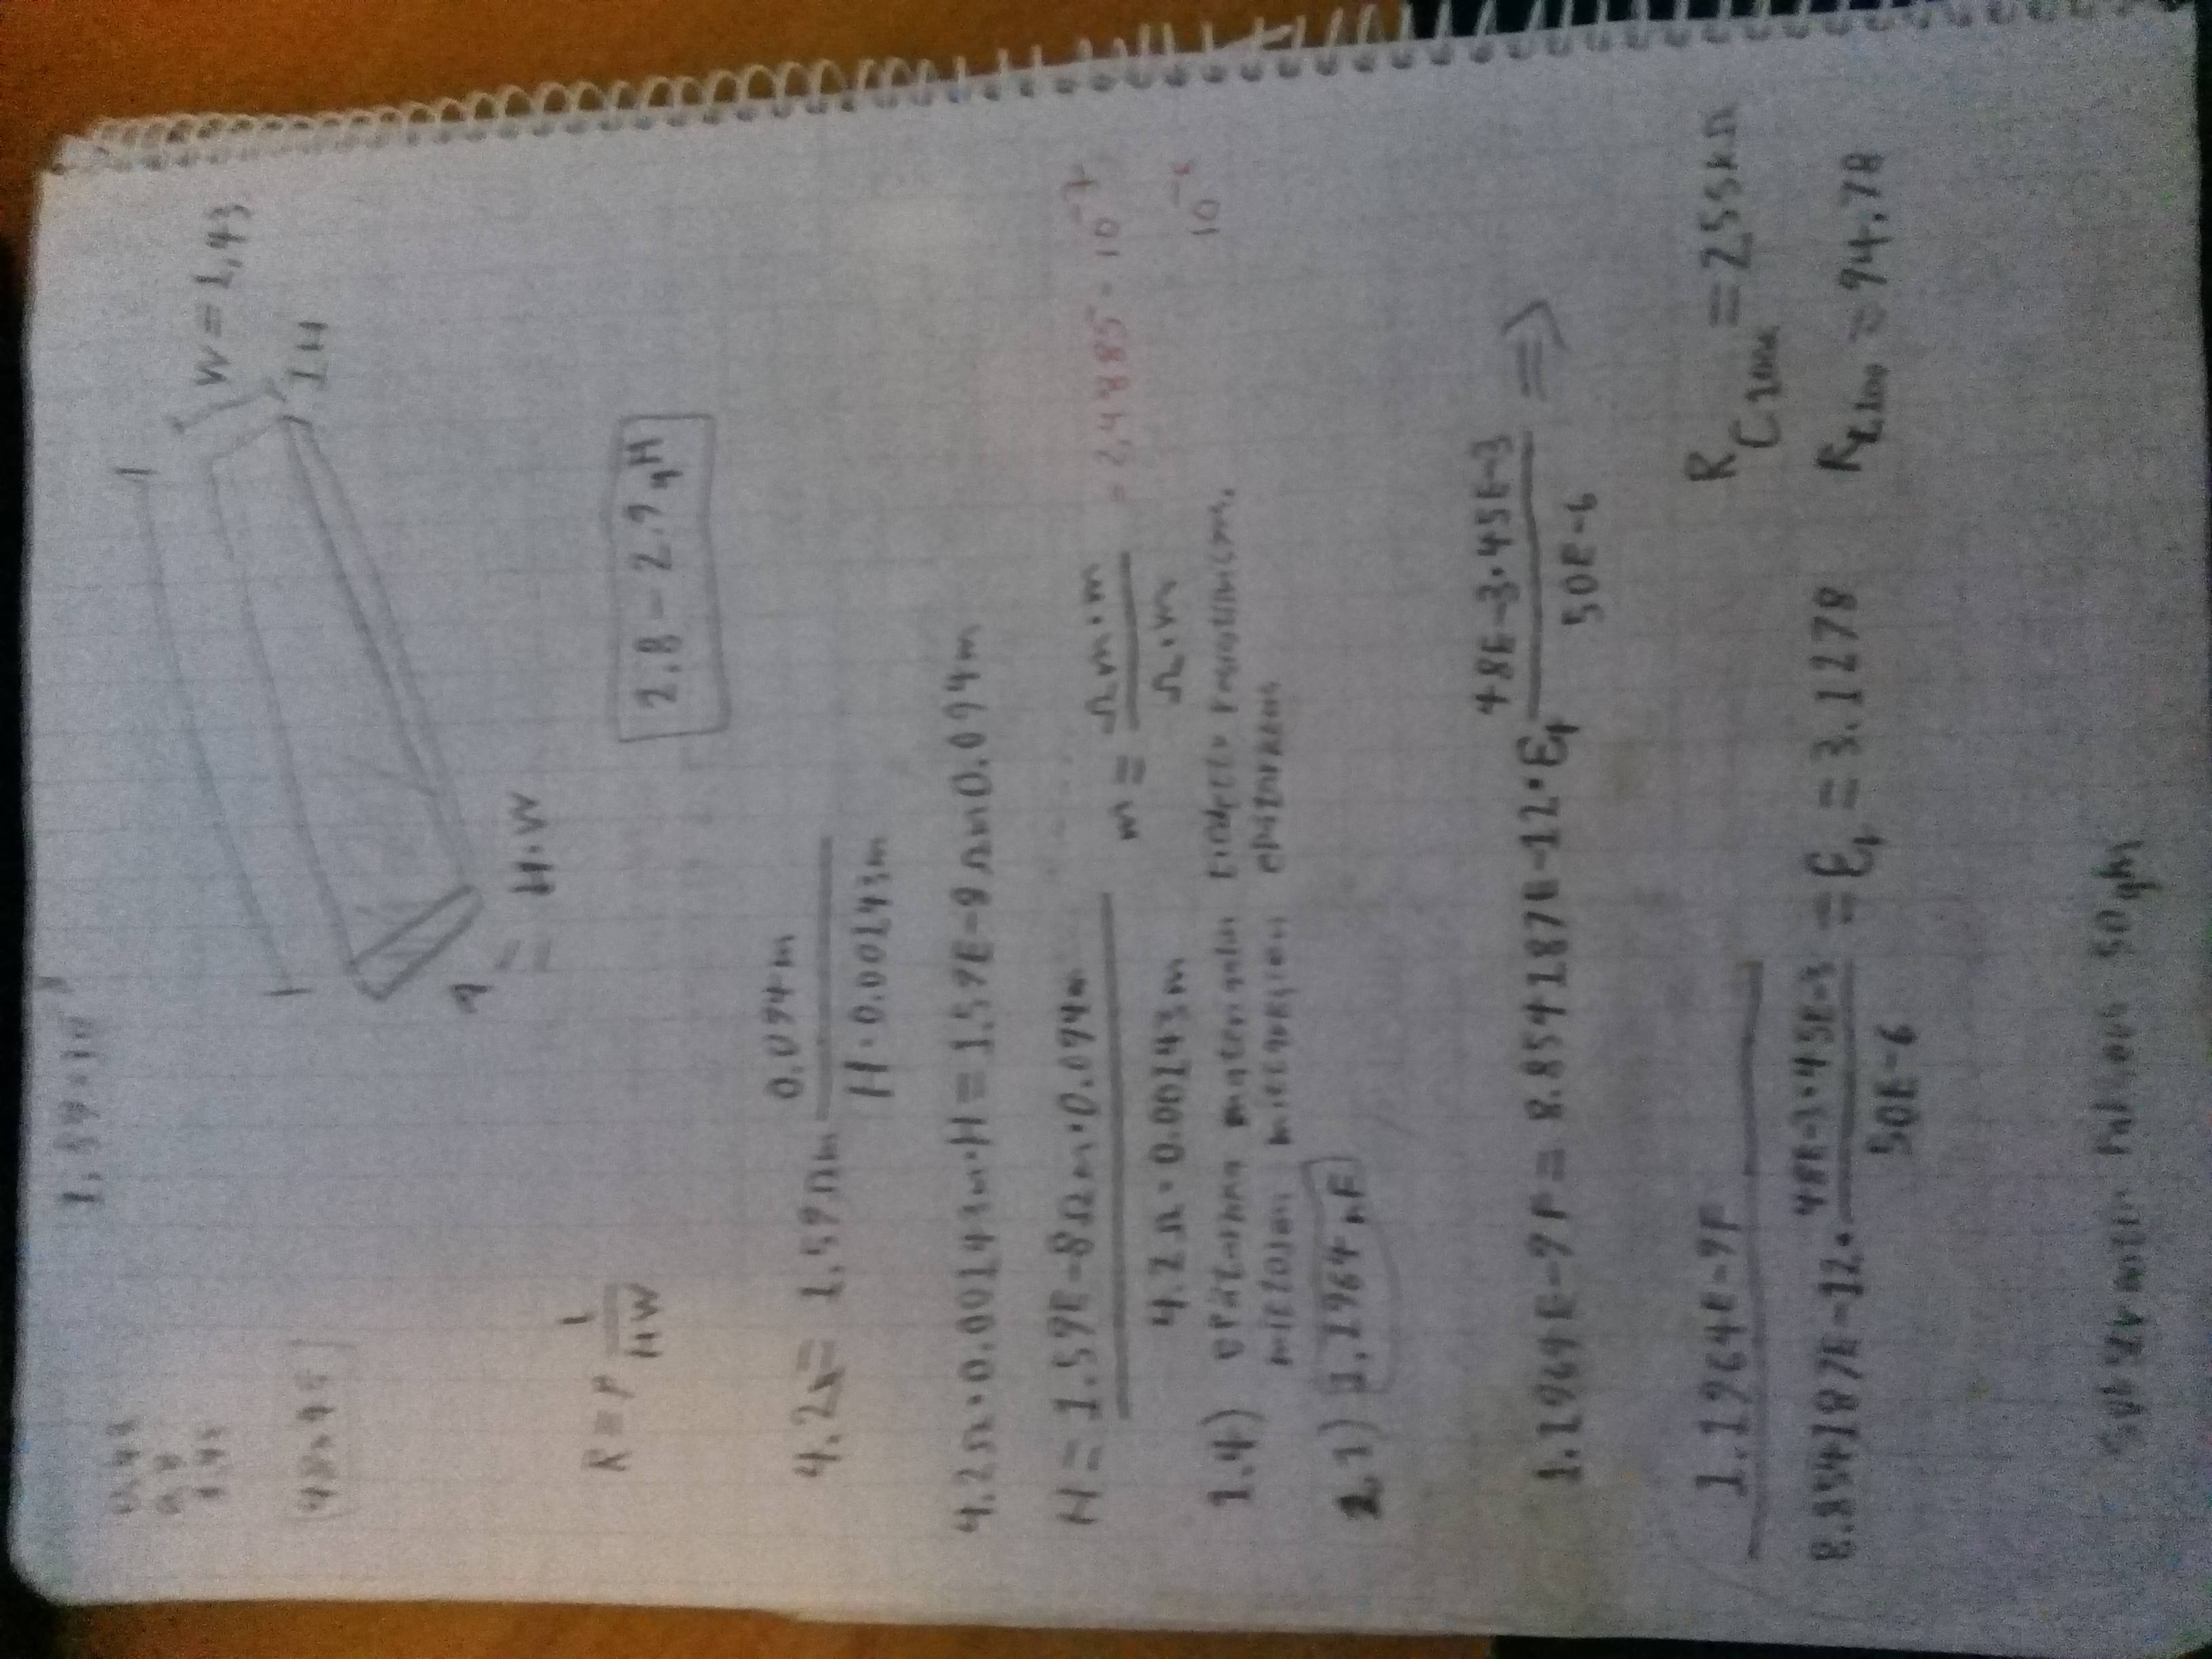 1,59·10
0.48
48×45
W = 1,43
H
= H·W
R = ρ l / HW
2.8 – 2.9 µH
4.2Ω = 1.59Ωm 0.094m / H·0.00143m
4.2Ω·0.00143m·H = 1.59E-8Ωm0.094m
H = 1.59E-8Ωm·0.094m / 4.2Ω·0.00143m m = Ωm·m / Ω·m = 2,4885·10⁻⁷
1.4) epätarkka materiaalin tiedetty resistiivisyys.
mittojen mittauksien epätarkkuus
2.1) 1,1964 nF
1.1964E-9F = 8.854187E-12·εr 48E-3·45E-3 / 50E-6 =>
1.1964E-9F / 8.854187E-12· 48E-3·45E-3 / 50E-6 = εr = 3.1278
R C100k = 255kΩ
R L100 = 94.78
50µm